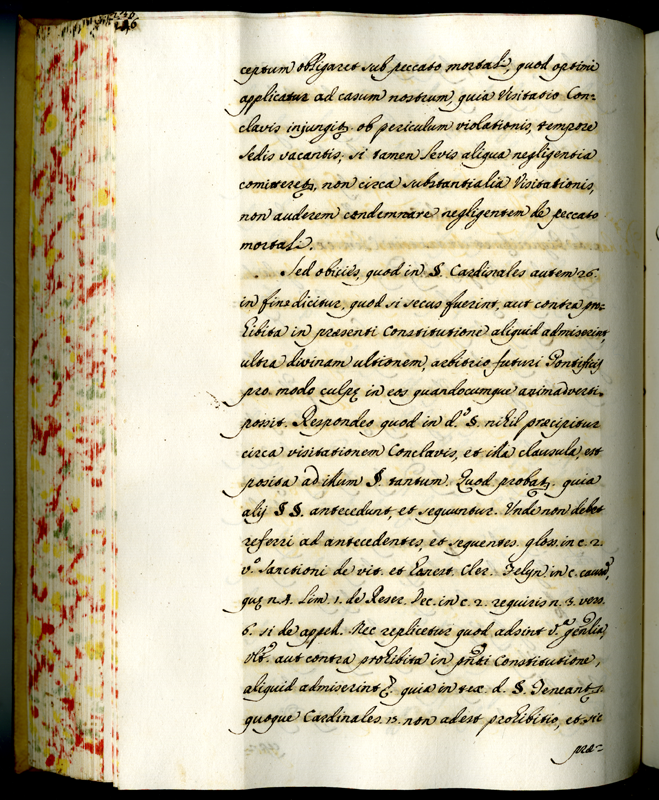 ceptum obligaret sub peccato mortali, quod optimè
applicatur ad casum nostrum, quia Visitatio Con=
clavis injungitur ob periculum violationis, tempore
sedis vacantis, si tamen levis aliqua negligentia
comitteretur, non circa substantialia Visitationis,
non auderem condemnare negligentem de peccato
mortali.
Sed obicies, quod in §. Cardinales autem 26.
in fine dicitur, quod si secus fuerint, aut contra pro=
hibita in præsenti Constitutione aliquid admiserint,
ultra divinam ultionem, arbitrio futuri Pontificis
pro modo culpę in eos quandocumque animadverti
possit. Respondeo quod in d.º §. nihil præcipitur
circa visitationem Conclavis, et illa clausula, est
posita ad illum §. tantum. Quod probatur, quia
alij §§. antecedunt, et sequuntur. Unde non debet
referri ad antecedentes, et sequentes glos. in c. 2.
v.º Sanctioni de vit. et honest. Cler. Felyn in c. causam,
quę n. 4. Lim. 1. de Reser. Dec. in c. 2. requiris n. 3. vers.
6. si de appell. Nec replicetur quod adsint v.ª gñlia,
Ult.º aut contra prohibita in pnti Constitutione,
aliquid admiserint quia in tex. d. §. Teneantur
quoque Cardinales 13. non adest prohibitio, et sic
præ=